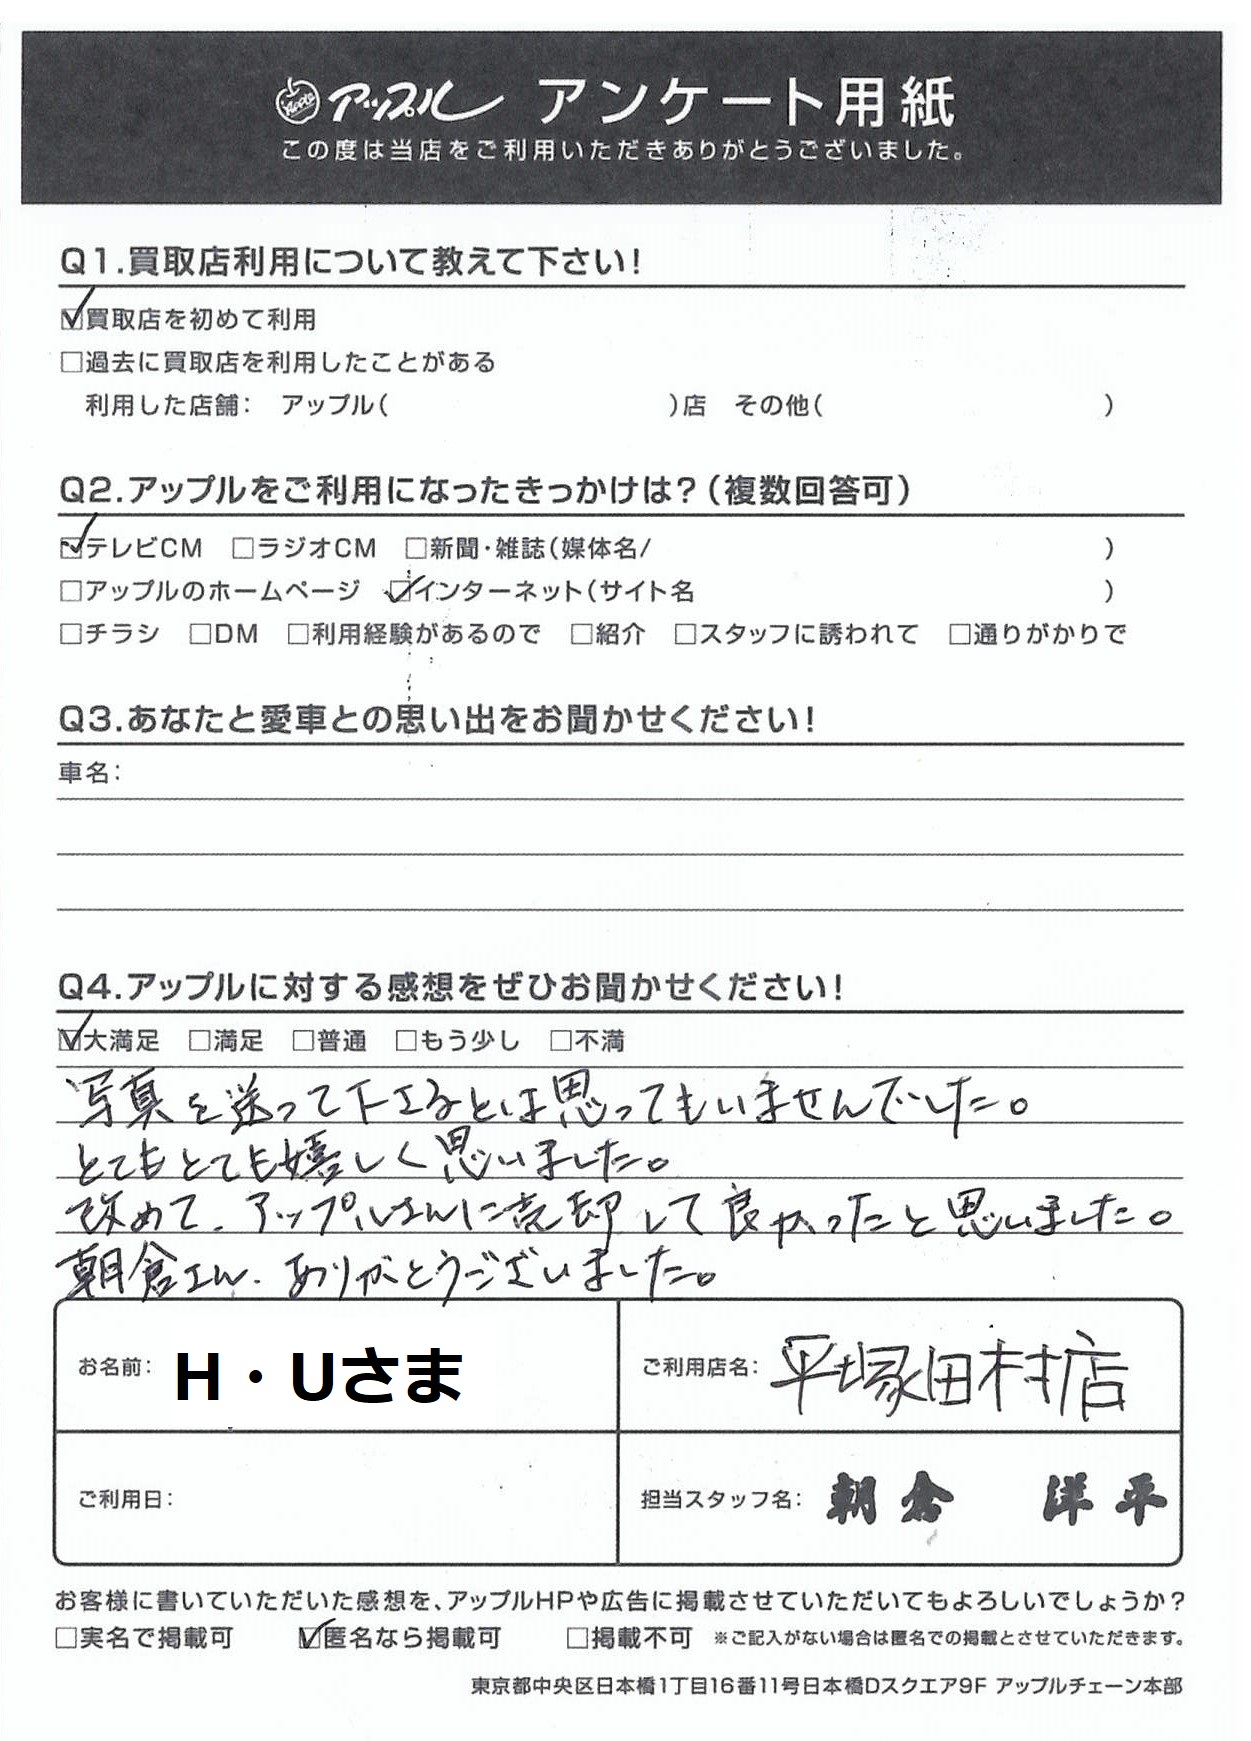 Apple アップル アンケート用紙
この度は当店をご利用いただきありがとうございました。
Q1.買取店利用について教えて下さい!
☑買取店を初めて利用
□過去に買取店を利用したことがある
利用した店舗: アップル( )店 その他( )
Q2.アップルをご利用になったきっかけは?(複数回答可)
☑テレビCM □ラジオCM □新聞・雑誌(媒体名/ )
□アップルのホームページ ☑インターネット(サイト名 )
□チラシ □DM □利用経験があるので □紹介 □スタッフに誘われて □通りがかりで
Q3.あなたと愛車との思い出をお聞かせください!
車名:
Q4.アップルに対する感想をぜひお聞かせください!
☑大満足 □満足 □普通 □もう少し □不満
写真を送って下さるとは思ってもいませんでした。
とてもとても嬉しく思いました。
改めて、アップルさんに売却して良かったと思いました。
朝倉さん、ありがとうございました。
お名前: H・Uさま ご利用店名: 平塚田村店
ご利用日: 担当スタッフ名: 朝倉 洋平
お客様に書いていただいた感想を、アップルHPや広告に掲載させていただいてもよろしいでしょうか?
□実名で掲載可 ☑匿名なら掲載可 □掲載不可 ※ご記入がない場合は匿名での掲載とさせていただきます。
東京都中央区日本橋1丁目16番11号日本橋Dスクエア9F アップルチェーン本部